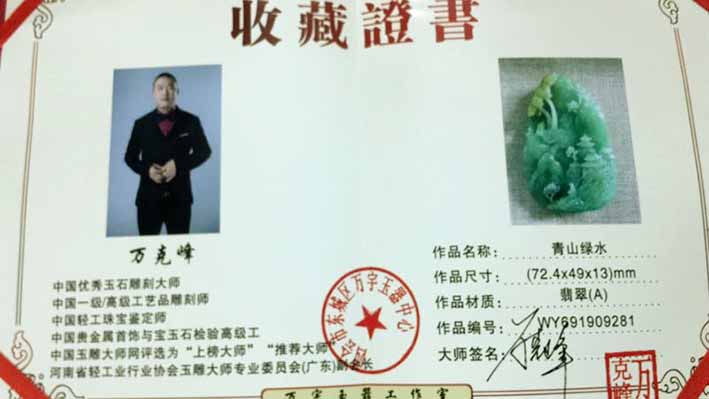 收藏證書
万克峰
中国优秀玉石雕刻大师
中国一级/高级工艺品雕刻师
中国轻工珠宝鉴定师
中国贵金属首饰与宝玉石检验高级工
中国玉雕大师网评选为“上榜大师”“推荐大师”
河南省轻工业行业协会玉雕大师专业委员会(广东)副会长
市东城区万宇玉器中心
作品名称: 青山绿水
作品尺寸: (72.4x49x13)mm
作品材质: 翡翠(A)
作品编号: WY691909281
大师签名:
万克峰
万宇玉器工作室